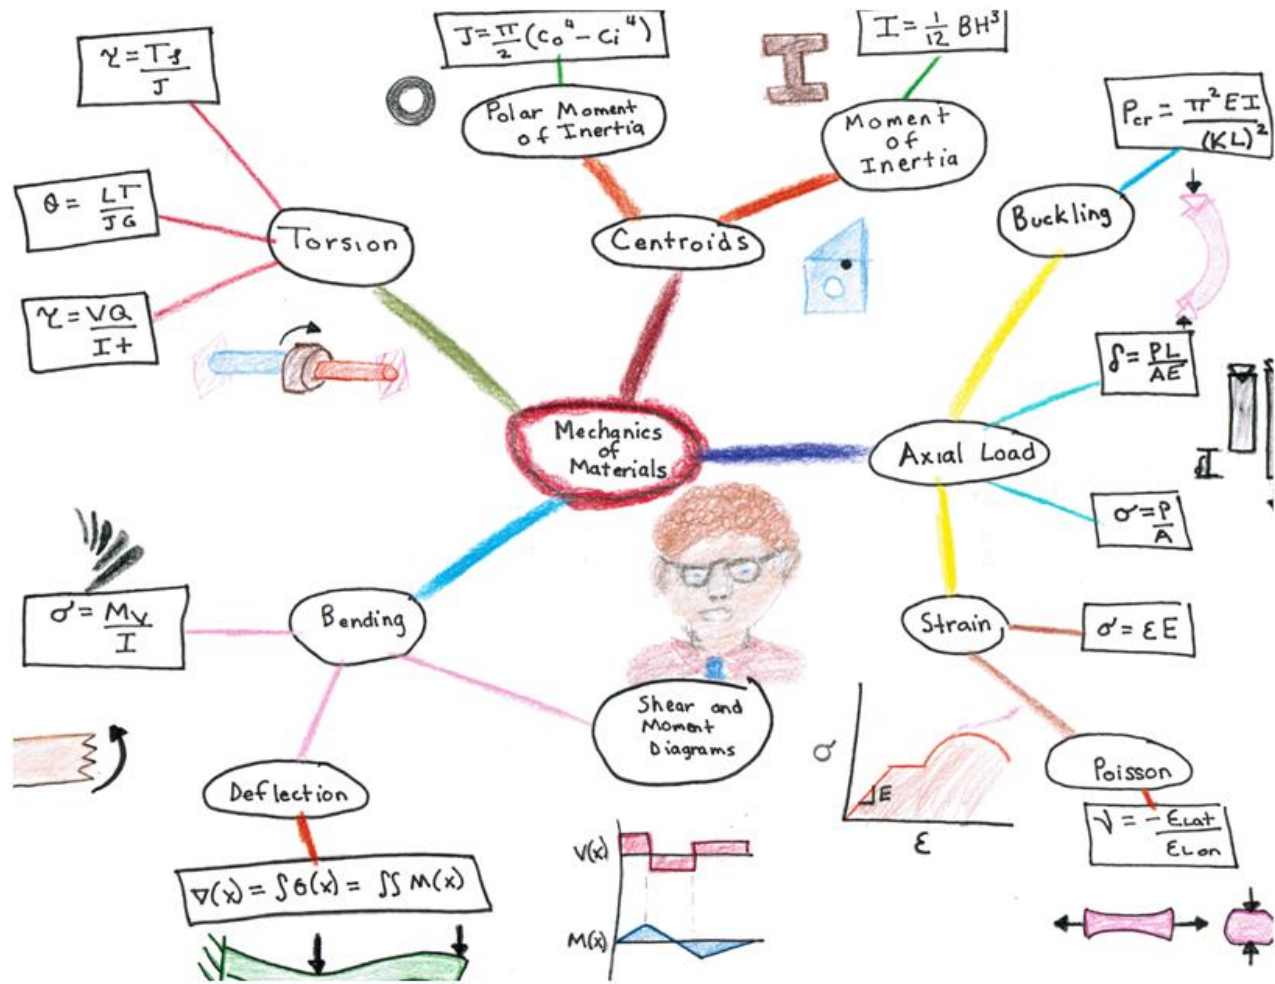 τ = Tρ
J
θ = LT
JG
τ = VQ
It
Torsion
J = π/2 (c₀⁴ - cᵢ⁴)
Polar Moment
of Inertia
I = 1/12 BH³
Moment
of
Inertia
Centroids
Pcr = π² E I
(KL)²
Buckling
δ = PL
AE
δ
Axial Load
σ = P
A
Mechanics
of
Materials
Strain
σ = ε E
Poisson
ν = - εLat
εLon
σ
E
ε
Bending
σ = My
I
Shear and
Moment
Diagrams
V(x)
M(x)
Deflection
∇(x) = ∫θ(x) = ∫∫ M(x)